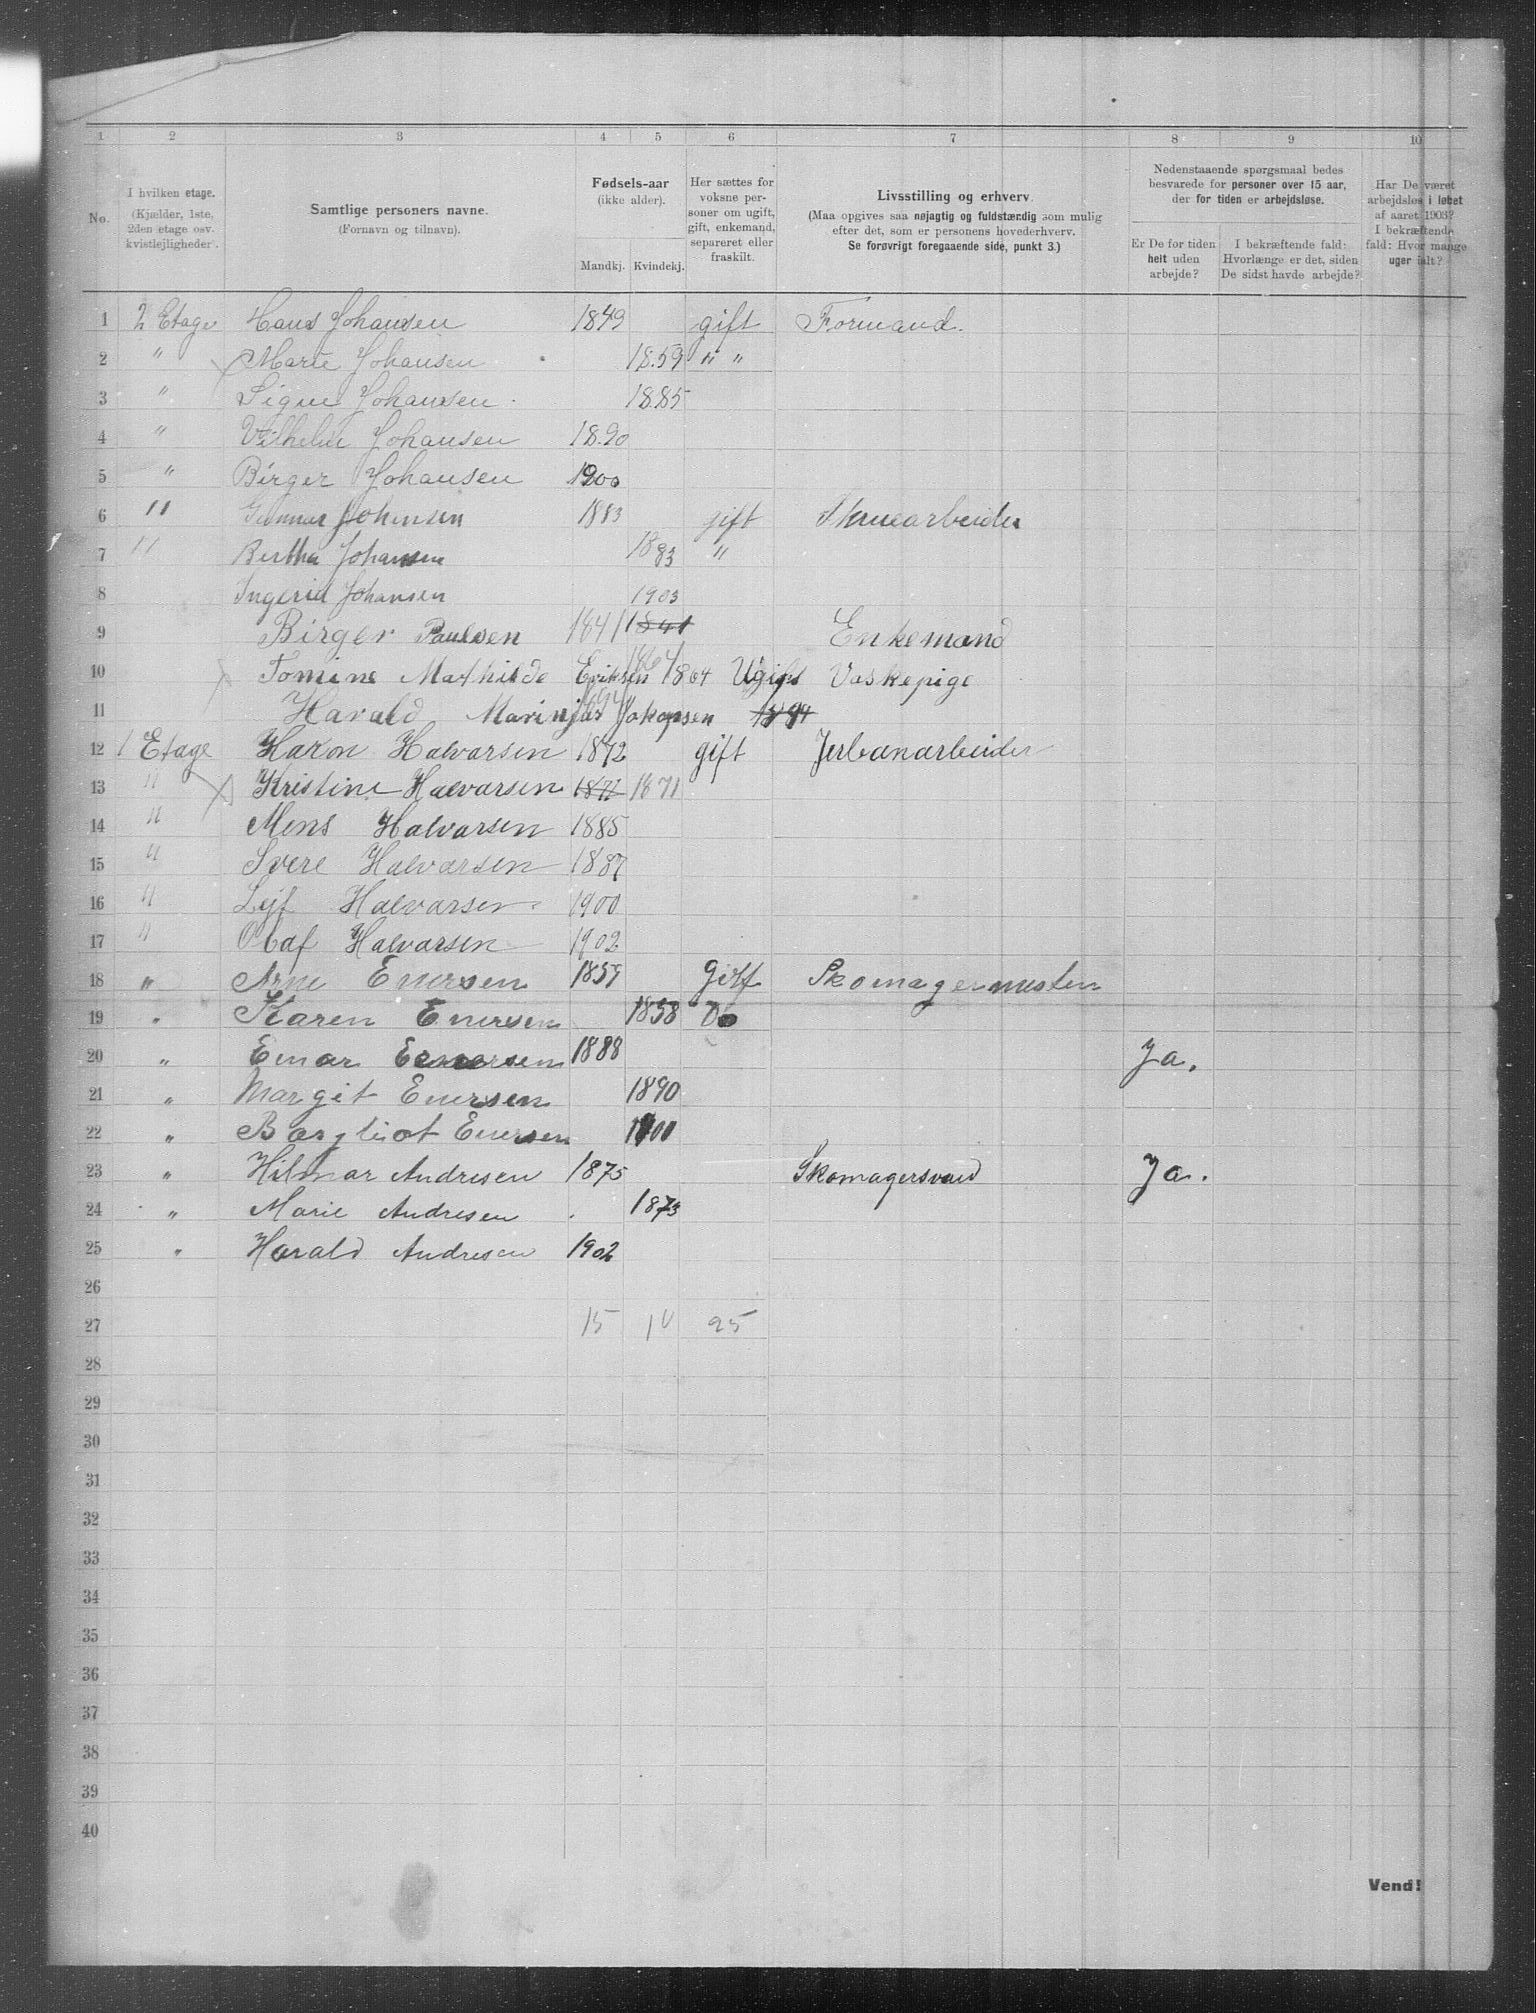 1 2 3 4 5 6 7 8 9 10
No.
I hvilken etage.
(Kjælder, 1ste,
2den etage osv.
kvistlejligheder.
Samtlige personers navne.
(Fornavn og tilnavn).
Fødsels-aar
(ikke alder).
Mandkj. Kvindekj.
Her sættes for
voksne per-
soner om ugift,
gift, enkemand,
separeret eller
fraskilt.
Livsstilling og erhverv.
(Maa opgives saa nøjagtig og fuldstændig som mulig
efter det, som er personens hovederhverv.
Se forøvrigt foregaaende side, punkt 3.)
Nedenstaaende spørgsmaal bedes
besvarede for personer over 15 aar,
der for tiden er arbejdsløse.
Er De for tiden
helt uden
arbejde?
I bekræftende fald:
Hvorlænge er det, siden
De sidst havde arbejde?
Har De været
arbejdsløs i løbet
af aaret 1903?
I bekræftende
fald: Hvor mange
uger ialt?
1 2 Etage Hans Johansen 1849 gift Formand.
2 " Marie Johansen 1859 " "
3 " Signe Johansen 1885
4 " Vilhelm Johansen 1890
5 " Birger Johansen 1900
6 " Gunnar Johansen 1883 gift Skruearbeider
7 " Bertha Johansen 1883 "
8 Ingerid Johansen 1903
9 Birger Paulsen 1841 1841 Enkemand
10 Tomine Mathilde Eriksen 1864 1864 Ugift Vaskepige
11 Harald Marinjus Jakopsen 1894
12 1 Etage Hakon Halvarsen 1872 gift Jerbanarbeider
13 " Kristine Halvarsen 1871 1871
14 " Mens Halvarsen 1885
15 " Svere Halvarsen 1887
16 " Lejf Halvarsen 1900
17 " Olaf Halvarsen 1902
18 " Arne Enersen 1859 Gift Skomagermesten
19 " Karen Enersen 1858 Do
20 " Einar Enersen 1888 Ja.
21 " Margit Enersen 1890
22 " Bargliot Enersen 1900
23 " Hilmar Andresen 1875 Skomagersvend Ja.
24 " Marie Andresen 1873
25 " Harald Andresen 1902
26
27 15 10 25
28
29
30
31
32
33
34
35
36
37
38
39
40
Vend!